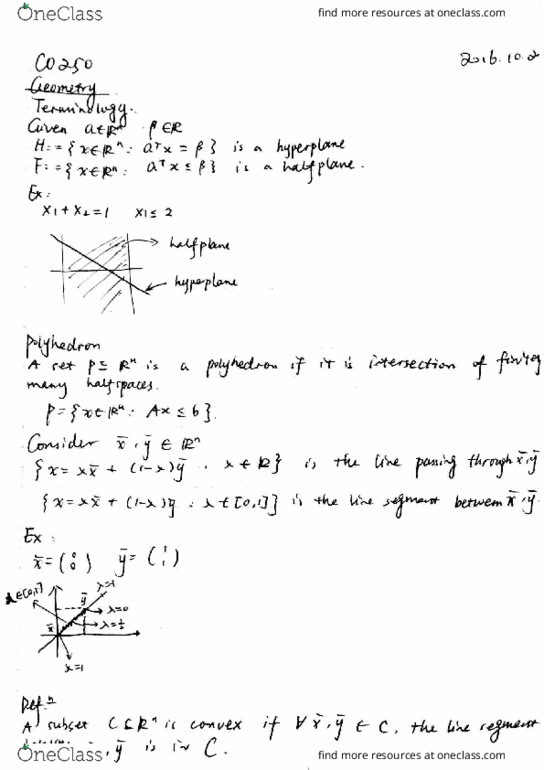 OneClass
find more resources at oneclass.com
CO250
2016.10.2
Geometry
Terminology.
Given a∈ℝⁿ β∈ℝ
H:={x∈ℝⁿ: aᵀx = β} is a hyperplane
F:={x∈ℝⁿ: aᵀx ≤ β} is a halfplane.
Ex:
x₁+x₂=1 x₁≤2
halfplane
hyperplane
Polyhedron
A set P⊆ℝⁿ is a polyhedron if it is intersection of finitely
many halfspaces.
P={x∈ℝⁿ: Ax≤b}.
Consider x̄, ȳ ∈ ℝⁿ
{x=λx̄+(1-λ)ȳ : λ∈ℝ} is the line passing through x̄, ȳ
{x=λx̄+(1-λ)ȳ : λ∈[0,1]} is the line segment between x̄, ȳ.
Ex:
x̄=(0 0) ȳ=(1 1)
λ∈[0,1]
ȳ
λ=0
x̄
λ=½
λ=1
Def.ⁿ
A subset C⊆ℝⁿ is convex if ∀x̄,ȳ ∈ C, the line segment
ȳ is in C.
OneClass
find more resources at oneclass.com